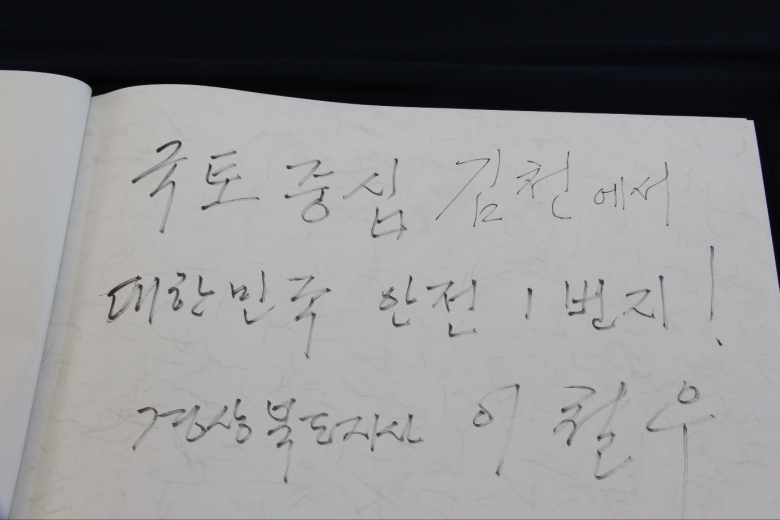 국토 중심 김천에서
대한민국 안전 1번지!
경상북도지사 이철우